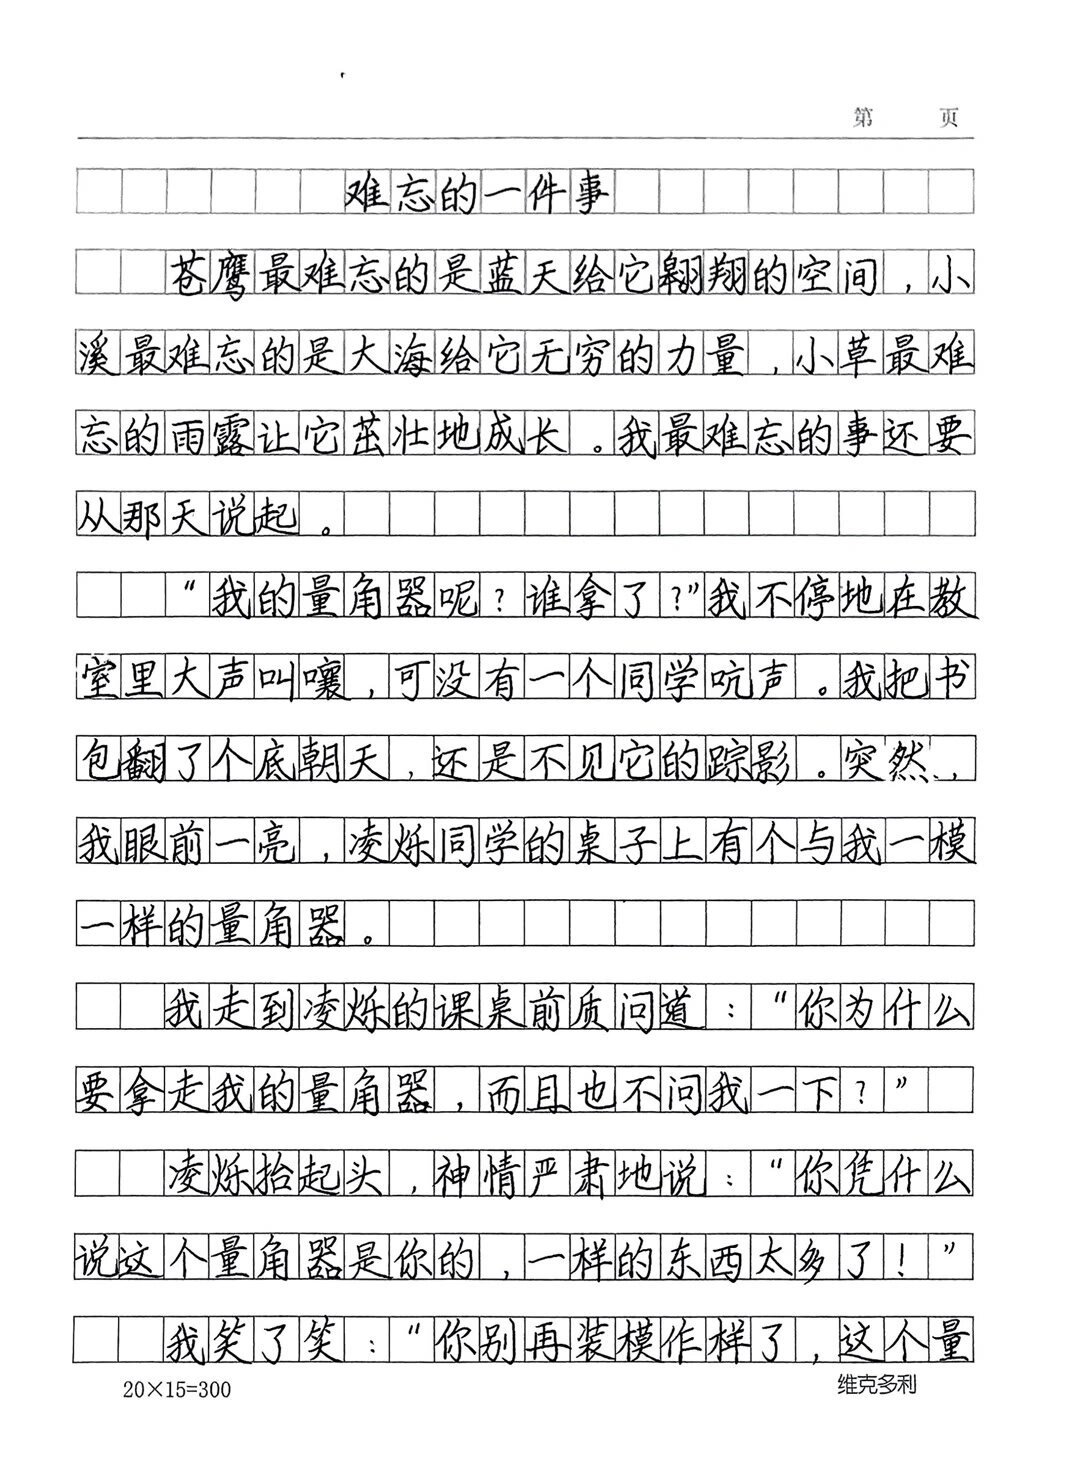 第 页
难忘的一件事
苍鹰最难忘的是蓝天给它翱翔的空间，小
溪最难忘的是大海给它无穷的力量，小草最难
忘的雨露让它茁壮地成长。我最难忘的事还要
从那天说起。
“我的量角器呢？谁拿了？”我不停地在教
室里大声叫嚷，可没有一个同学吭声。我把书
包翻了个底朝天，还是不见它的踪影。突然，
我眼前一亮，凌烁同学的桌子上有个与我一模
一样的量角器。
我走到凌烁的课桌前质问道：“你为什么
要拿走我的量角器，而且也不问我一下？”
凌烁抬起头，神情严肃地说：“你凭什么
说这个量角器是你的，一样的东西太多了！”
我笑了笑：“你别再装模作样了，这个量
20×15=300 维克多利